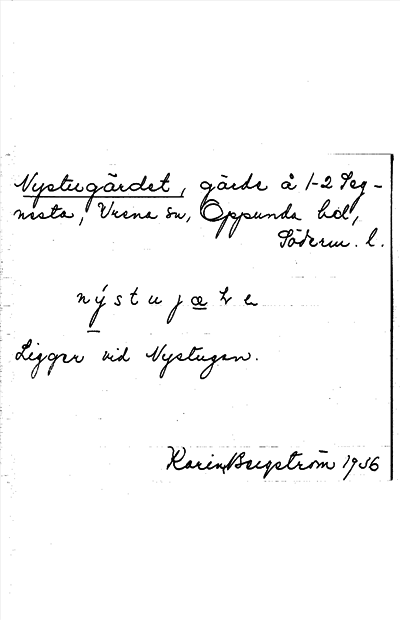 Nystugärdet, gärde å 1-2 Seg-
nesta, Vrena sn, Oppunda hd,
Söderm. l.
nýstujæ
Ligger vid Nystugan.
Karin Bergström 1936